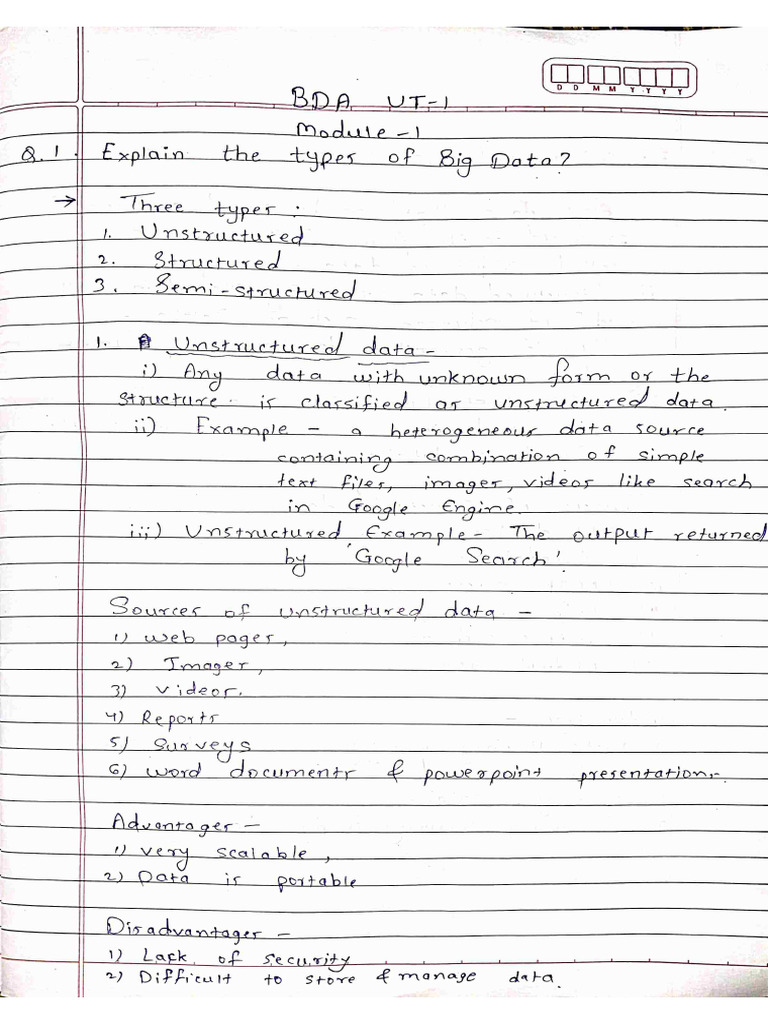 D D M M Y Y Y Y
BDA UT-1
Module-1
Q.1. Explain the types of Big Data?
→ Three types :
1. Unstructured
2. Structured
3. Semi-structured
1. Unstructured data -
i) Any data with unknown form or the
structure is classified as unstructured data.
ii) Example - a heterogeneous data source
containing combination of simple
text files, images, videos like search
in Google Engine.
iii) Unstructured Example - The output returned
by 'Google Search'.
Sources of unstructured data -
1) web pages,
2) Images,
3) videos.
4) Reports
5) Surveys
6) word documents & powerpoint presentation.
Advantages -
1) very scalable,
2) Data is portable
Disadvantages -
1) Lack of security
2) Difficult to store & manage data.